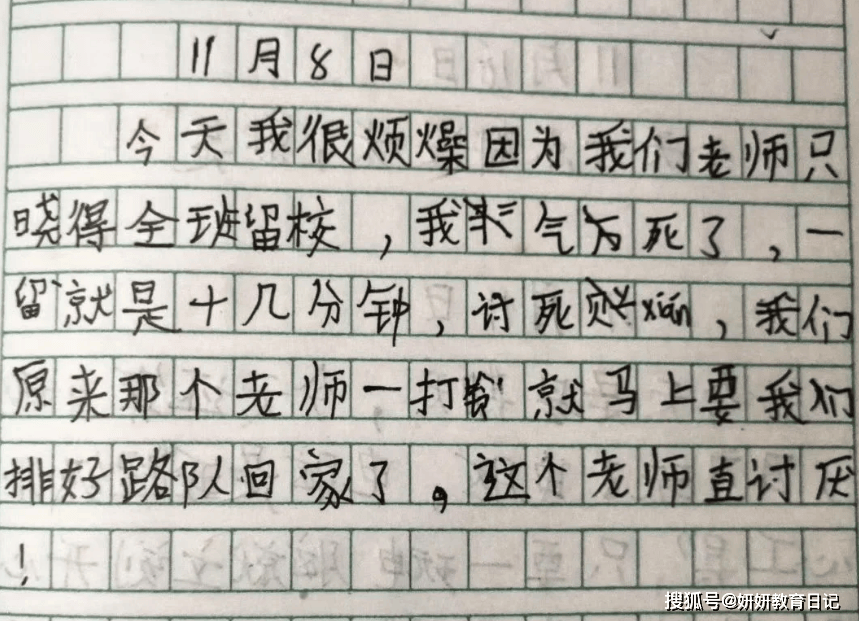 11月8日
今天我很烦燥因为我们老师只
晓得全班留校，我气死了，一
留就是十几分钟，讨死xián，我们
原来那个老师一打就马上要我们
排好路队回家了。这个老师直讨厌
！
搜狐号@妍妍教育日记